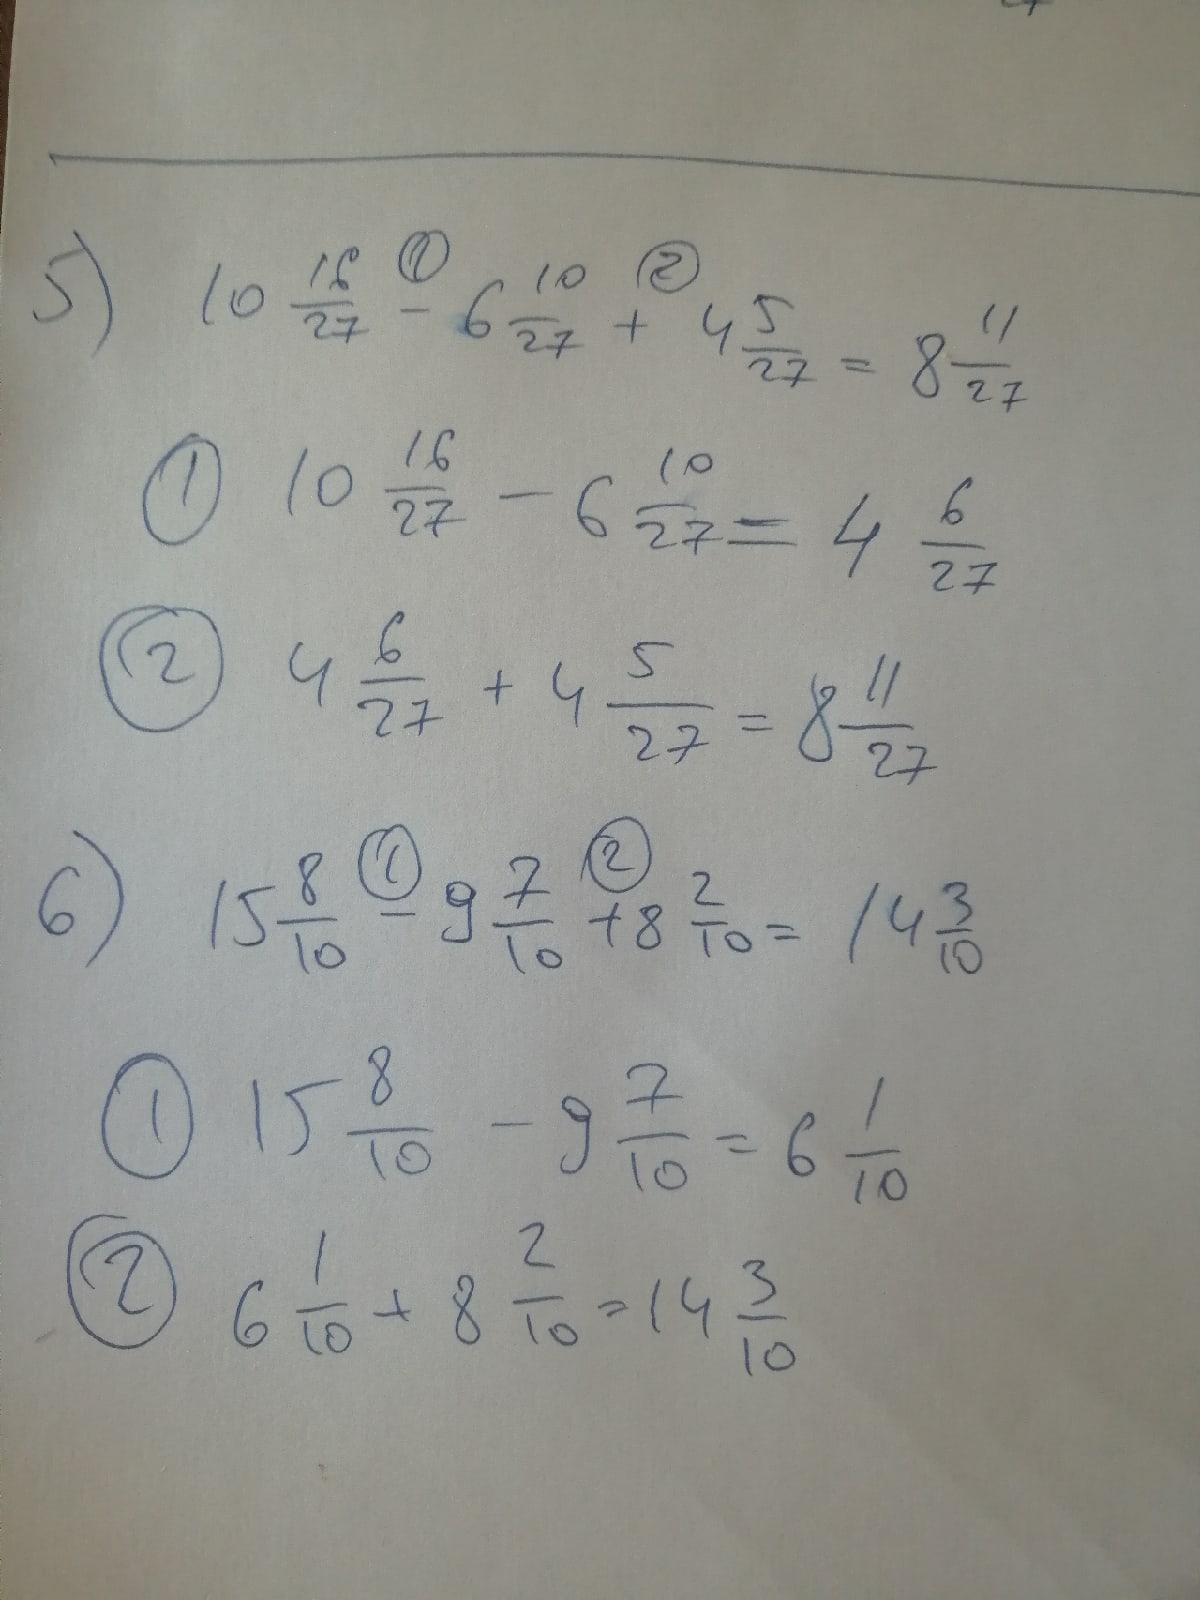 5) 10 16/27 ① - 6 10/27 ② + 4 5/27 = 8 11/27
① 10 16/27 - 6 10/27 = 4 6/27
② 4 6/27 + 4 5/27 = 8 11/27
6) 15 8/10 ① - 9 7/10 ② + 8 2/10 = 14 3/10
① 15 8/10 - 9 7/10 = 6 1/10
② 6 1/10 + 8 2/10 = 14 3/10